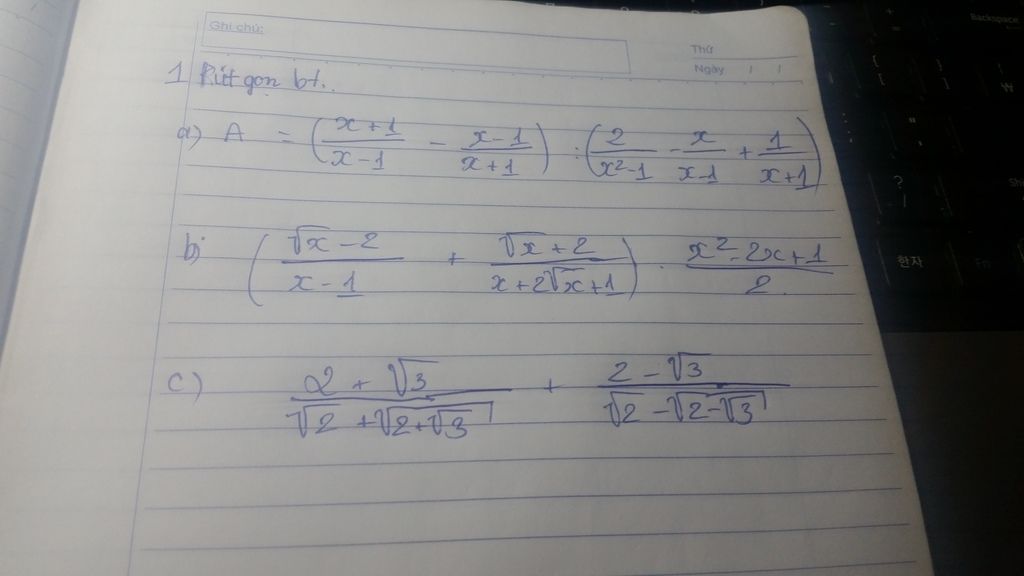 Backspace
Ghi chú:
Thứ
Ngày / /
1 Rút gọn bt.
a) A = (x+1/x-1 - x-1/x+1) : (2/x²-1 - x/x-1 + 1/x+1)
b) (√x-2/x-1 + √x+2/x+2√x+1) . x²-2x+1/2
c) 2+√3/√2+√2+√3 + 2-√3/√2-√2-√3
?
/
한자
₩